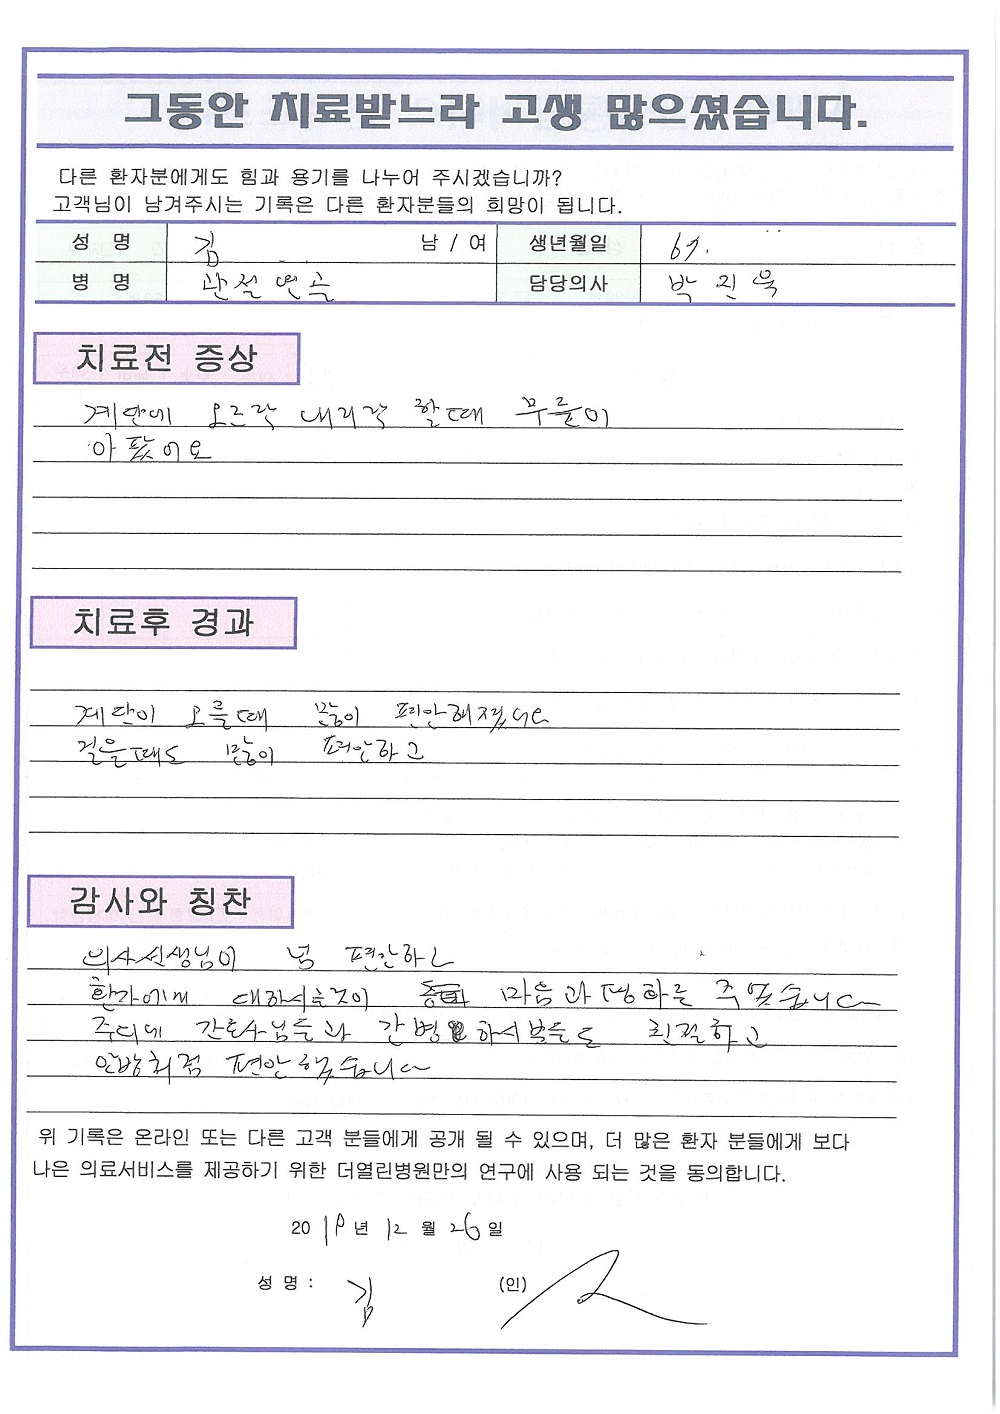 그동안 치료받느라 고생 많으셨습니다.
다른 환자분에게도 힘과 용기를 나누어 주시겠습니까?
고객님이 남겨주시는 기록은 다른 환자분들의 희망이 됩니다.
성 명 김 남 / 여 생년월일 67.
병 명 관절연골 담당의사 박진욱
치료전 증상
계단에 오르락 내리락 할때 무릎이
아팠어요
치료후 경과
계단이 오를때 많이 편안해졌네요
걸을때도 많이 편안하고
감사와 칭찬
의사선생님이 넘 편안하고
환자에게 마음과 평화를 주었습니다
주위에 간호사님들과 간병 하시분들도 친절하고
편안했습니다
위 기록은 온라인 또는 다른 고객 분들에게 공개 될 수 있으며, 더 많은 환자 분들에게 보다
나은 의료서비스를 제공하기 위한 더열린병원만의 연구에 사용 되는 것을 동의합니다.
2018년 12월 26일
성 명 : 김 (인)